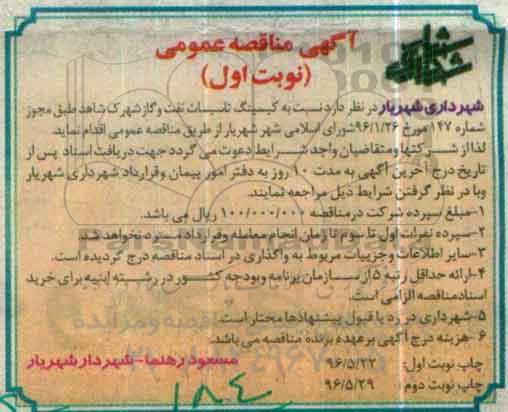 آگهی مناقصه عمومی
(نوبت اول)
شهرداری شهریار در نظر دارد نسبت به کیسینگ تاسیسات نفت و گاز شهرک شاهد طبق مجوز
شماره ۱۴۷ مورخ ۹۶/۱/۲۶ شورای اسلامی شهر شهریار از طریق مناقصه عمومی اقدام نماید.
لذا از شرکتها و متقاضیان واجد شرایط دعوت می گردد جهت دریافت اسناد پس از
تاریخ درج آخرین آگهی به مدت ۱۰ روز به دفتر امور پیمان و قرارداد شهرداری شهریار
وبا در نظر گرفتن شرایط ذیل مراجعه نمایند.
۱-مبلغ سپرده شرکت در مناقصه ۱۰۰/۰۰۰/۰۰۰ ریال می باشد.
۲-سپرده نفرات اول تا سوم تا زمان انجام معامله وقرارداد مسترد نخواهد شد.
۳-سایر اطلاعات و جزییات مربوط به واگذاری در اسناد مناقصه درج گردیده است.
۴-ارائه حداقل رتبه ۵ از سازمان برنامه وبودجه کشور در رشته ابنیه برای خرید
اسناد مناقصه الزامی است.
۵-شهرداری در رد یا قبول پیشنهادها مختار است.
۶-هزینه درج آگهی بر عهده برنده مناقصه می باشد.
چاپ نوبت اول: ۹۶/۵/۲۲ مسعود رهلما-شهردار شهریار
چاپ نوبت دوم: ۹۶/۵/۲۹
۱۸۴